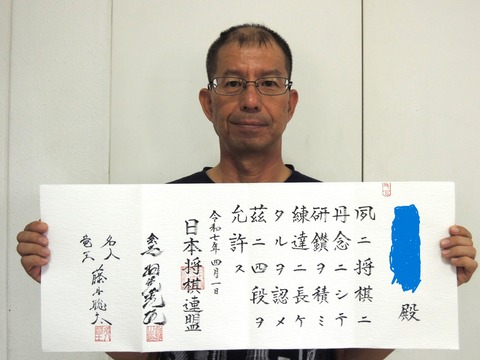 殿
夙ニ将棋ニ
丹念ニシテ
研鑽ヲ積ミ
練達ニ長ケ
タルヲ認メ
茲ニ四段ヲ
允許ス
令和七年四月一日
日本将棋連盟
会長
名人
竜王 藤井聡太